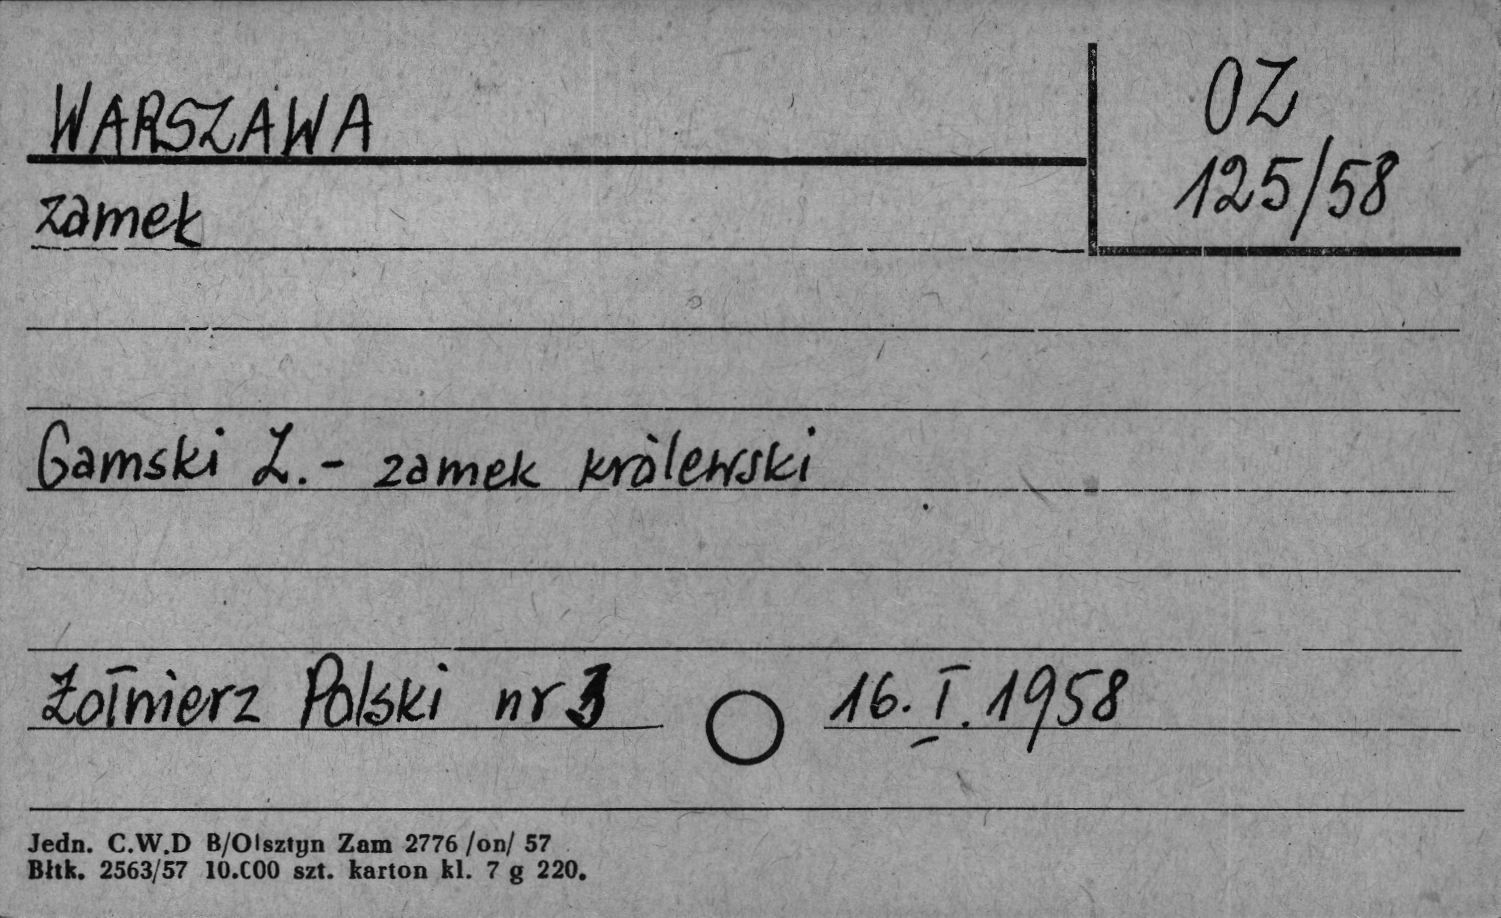 WARSZAWA
OZ
125/58
zamek
Gamski Z. - zamek królewski
Żołnierz Polski nr 3
16. I. 1958
Jedn. C.W.D B/Olsztyn Zam 2776 /on/ 57
Błtk. 2563/57 10.000 szt. karton kl. 7 g 220.